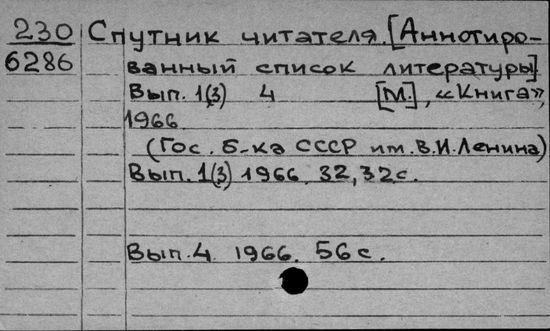 230 Спутник читателя. [Аннотиро-
6286 ванный список литературы]
Вып. 1(3) 4 [М.], «Книга»,
1966.
(Гос. б-ка СССР им. В.И.Ленина)
Вып. 1(3) 1966. 32, 32 с.
Вып. 4. 1966. 56 с.